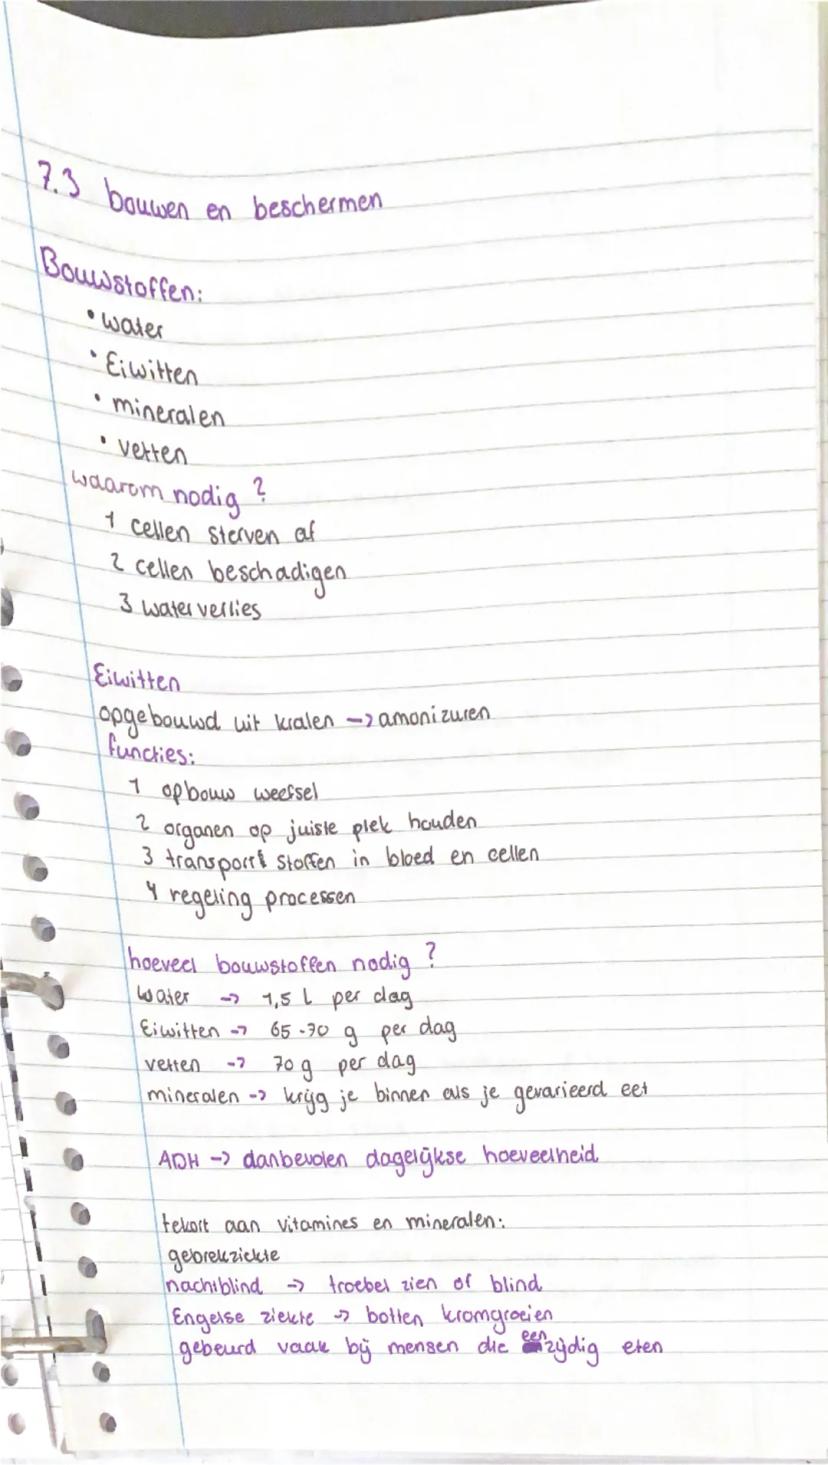 7.3 bouwen en beschermen
Bouwstoffen:
• water
• Eiwitten
• mineralen
• vetten
waarom nodig?
1 cellen sterven af
2 cellen beschadigen
3 waterverlies
Eiwitten
opgebouwd uit kralen -> amonizuren
functies:
1 opbouw weefsel
2 organen op juiste plek houden
3 transport stoffen in bloed en cellen
4 regeling processen
hoeveel bouwstoffen nodig?
water -> 1,5 L per dag
Eiwitten -> 65-70 g per dag
vetten -> 70 g per dag
mineralen -> krijg je binnen als je gevarieerd eet
ADH -> aanbevolen dagelijkse hoeveelheid
tekort aan vitamines en mineralen:
gebrekziekte
nachtblind -> troebel zien of blind
Engelse ziekte -> botten kromgroeien
gebeurd vaak bij mensen die eenzijdig eten